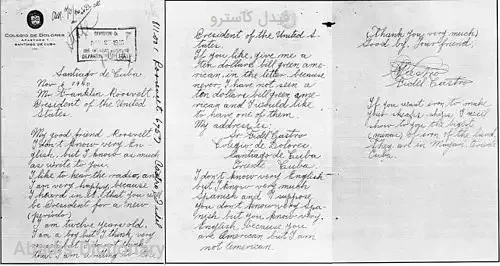 فيدل كاسترو
COLEGIO DE DOLORES
APARTADO 1
SANTIAGO DE CUBA
Santiago de Cuba
Nov 6 1940
Mr Franklin Roosevelt,
President of the United
States.
My good friend Roosevelt
I don't know very En-
glish, but I know as much
as write to you.
I like to hear the radio, and
I am very happy, because
I heard in it, that you will
be President for a new
(periodo)
I am twelve years old.
I am a boy but I think very
much but I do not think
that I am writing to the
President of the United S-
tates.
If you like, give me a
ten dollars bill green ame-
rican in the letter, because
never, I have not seen a
ten dollars bill green ame-
rican and I would like
to have one of them.
My address is:
Sr Fidel Castro
Colegio de Dolores
Santiago de Cuba
Oriente Cuba
I don't know very English
but I know very much
Spanish and I suppose
you don't know very Spa-
nish but you know very
English because you
are American but I am
not American.
(Thank you very much)
Good by. Your friend,
Castro
Fidel Castro
If you want iron to make
your ships I will
show to you the bigest
(minas) of iron of the land.
They are in Mayari Oriente
Cuba.